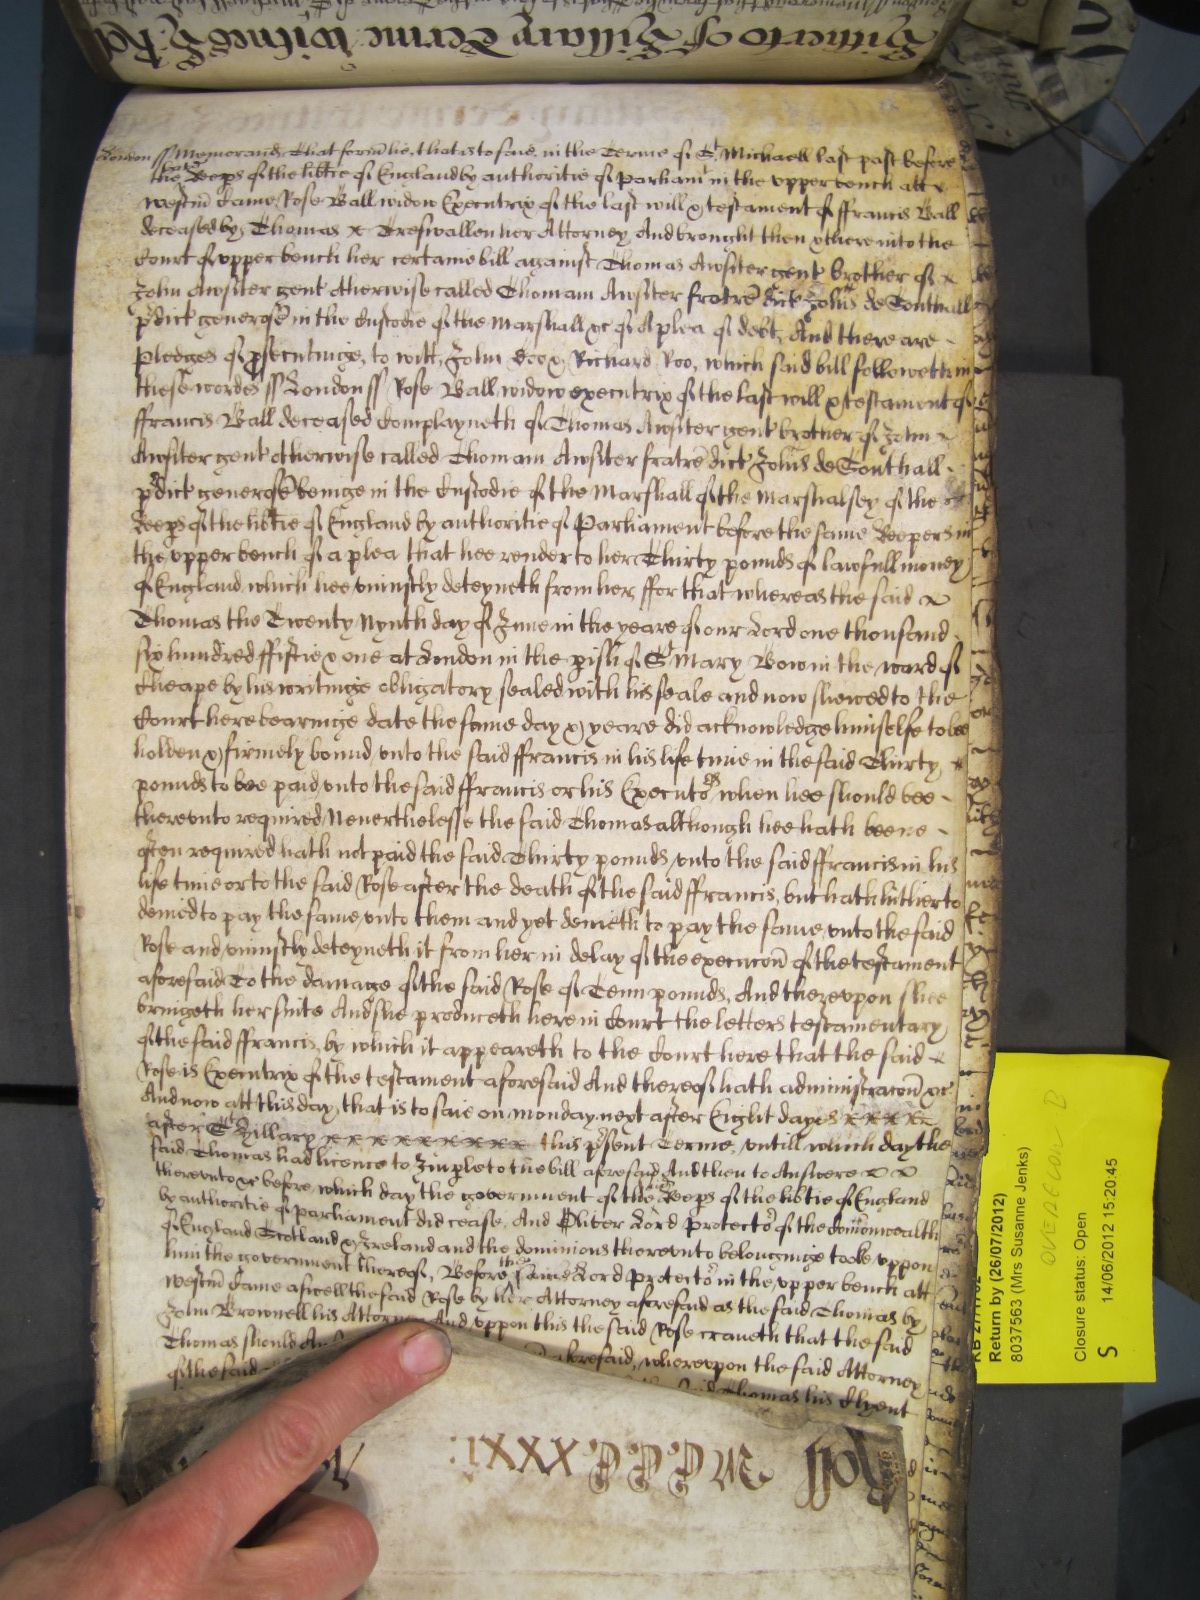 Hitherto of Hillary Terme Witnes
London ss Memorand That formlie, that is to saie, in the Terme of St Michaell last past before
the Keeps of the libtie of England by authoritie of Parliamt in the upper bench att
Westm̄ Came Rose Ball widow Executrix of the last will & testament of ffrancis Ball
deceased by Thomas Treswallen her Attorney, And brought then & there into the
Court of upper bench her certaine bill against Thomas Awsiter gent brother of
John Awsiter gent otherwise called Thomam Awsiter fratrē dict Johis de Southall
pdict generosē in the Custodie of the Marshall &c of A plea of debt, And there are
Pledges of psecutinge, to witt, John Doo & Richard Roo, which said bill followeth in
these wordes ss London ss Rose Ball widow executrix of the last will & testament of
ffrancis Ball deceased Complayneth of Thomas Awsiter gent brother of John
Awsiter gent otherwise called Thomam Awsiter fratrē dict Johis de Southall
pdict generosē beinge in the Custodie of the Marshall of the Marshalsey of the
Keeps of the libtie of England by authoritie of Parliament before the same Keepers in
the upper bench of a plea that hee render to her Thirty pounds of lawfull money
of England which hee uniustly deteyneth from her, ffor that whereas the said
Thomas the Twenty Nynth day of June in the yeare of our Lord one thousand
six hundred ffiftie & one at London in the pish of St Mary Bow in the ward of
Cheape by his writinge obligatory sealed with his seale and now shewed to the
Court here bearinge date the same day & yeare did acknowledge himselfe to bee
holden & firmely bound unto the said ffrancis in his life time in the said Thirty
pounds to bee paid unto the said ffrancis or his Executors when hee should bee
thereunto required, Neverthelesse the said Thomas although hee hath beene
often required hath not paid the said Thirty pounds unto the said ffrancis in his
life time or to the said Rose after the death of the said ffrancis, but hath hitherto
denied to pay the same unto them and yet denieth to pay the same unto the said
Rose and uniustly deteyneth it from her in delay of the execucon̄ of the testament
aforesaid To the damage of the said Rose of Tenn pounds, And thereupon shee
bringeth her suite And shee produceth here in Court the letters testamentary
of the said ffrancis, by which it appeareth to the Court here that the said
Rose is Executrix of the testament aforesaid And thereof hath administracon̄ &c
And now att this day, that is to saie on Monday next after Eight dayes
after St Hillary this psent Terme, untill which day the
said Thomas had licence to Imple to the bill aforesaid And then to Answere
thereunto &c before which day the government of the Keeps of the libtie of England
by authoritie of parliament did cease, And Oliver Lord Protector of the Comonwealth
of England Scotland & Ireland and the dominions thereunto belonginge tooke uppon
him the government thereof, Before the same Lord Protector in the upper bench att
Westm̄ Came aswell the said Rose by her Attorney aforesaid as the said Thomas by
John Brownell his Attorney And uppon this the said Rose craveth that the said
Thomas should
aforesaid, whereupon the said Attorney
of the said Thomas his Clyent
Roll M.D.C.C.XXXI:
Return by (26/07/2012)
8037563 (Mrs Susanne Jenks)
Closure status: Open
S 14/06/2012 15:20:45